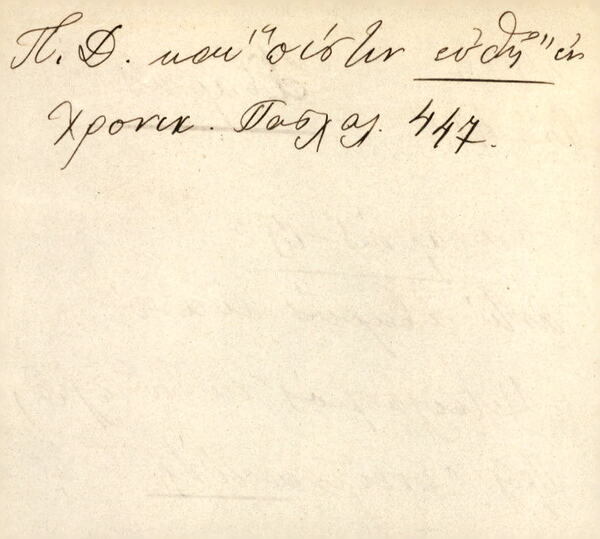 Π. Δ. και "πίστιν εὐθῆ" ἐν
Χρονικ. Πασχαλ. 447.